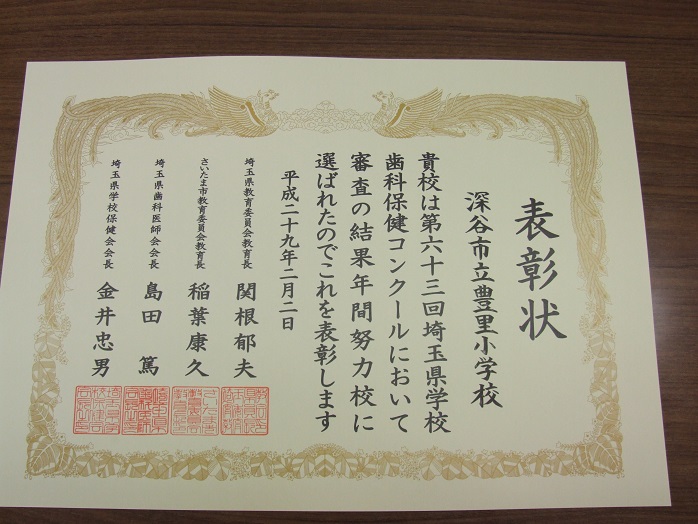 表彰状
深谷市立豊里小学校
貴校は第六十三回埼玉県学校
歯科保健コンクールにおいて
審査の結果年間努力校に
選ばれたのでこれを表彰します
平成二十九年二月二日
埼玉県教育委員会教育長 関根郁夫
さいたま市教育委員会教育長 稲葉康久
埼玉県歯科医師会会長 島田篤
埼玉県学校保健会会長 金井忠男